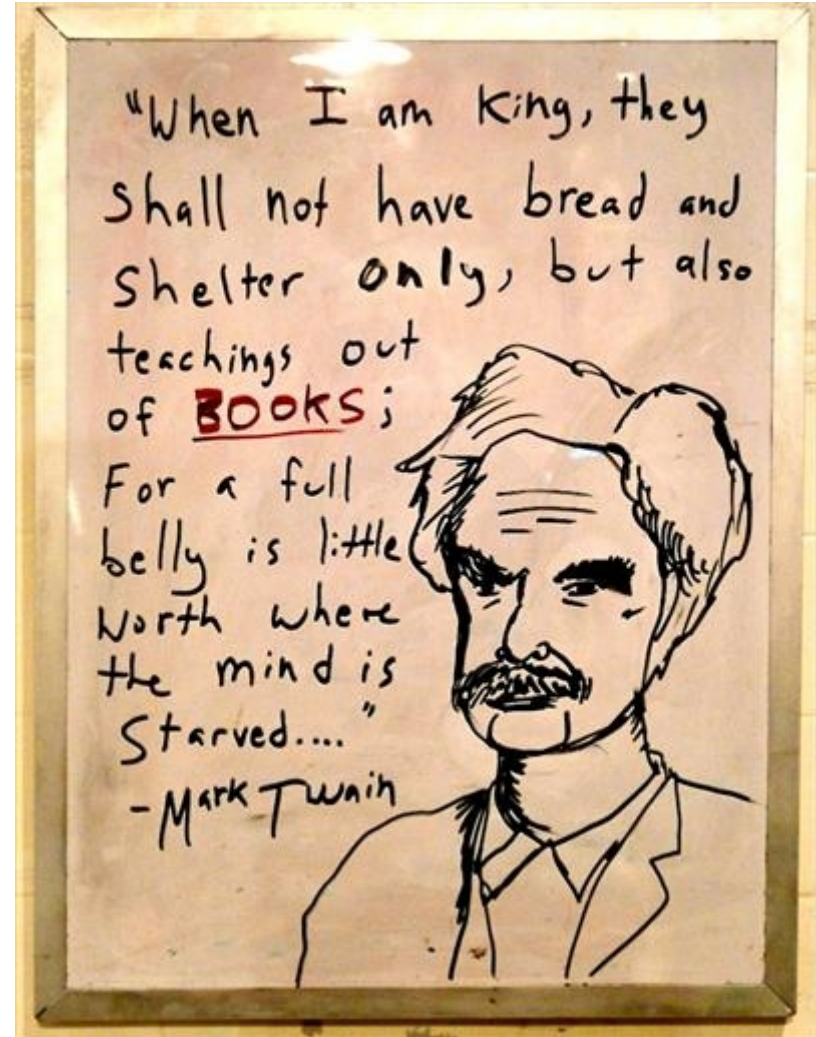 "When I am King, they
shall not have bread and
shelter only, but also
teachings out
of BOOKS;
For a full
belly is little
worth where
the mind is
starved...."
-Mark Twain